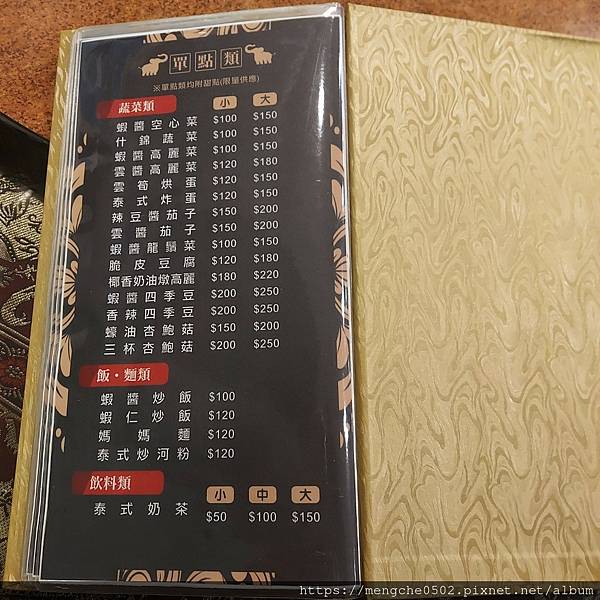 單點類
※單點類均附甜點(限量供應)
蔬菜類 小 大
蝦醬空心菜 $100 $150
什錦蔬菜 $100 $150
蝦醬高麗菜 $100 $150
雲醬高麗菜 $120 $180
雲筍烘蛋 $120 $150
泰式炸蛋 $120 $150
辣豆醬茄子 $150 $200
雲醬茄子 $150 $200
蝦醬龍鬚菜 $100 $150
脆皮豆腐 $120 $180
椰香奶油燉高麗 $180 $220
蝦醬四季豆 $200 $250
香辣四季豆 $200 $250
蠔油杏鮑菇 $150 $200
三杯杏鮑菇 $200 $250
飯・麵類
蝦醬炒飯 $100
蝦仁炒飯 $120
媽媽麵 $120
泰式炒河粉 $120
飲料類 小 中 大
泰式奶茶 $50 $100 $150
https://mengche0502.pixnet.net/album